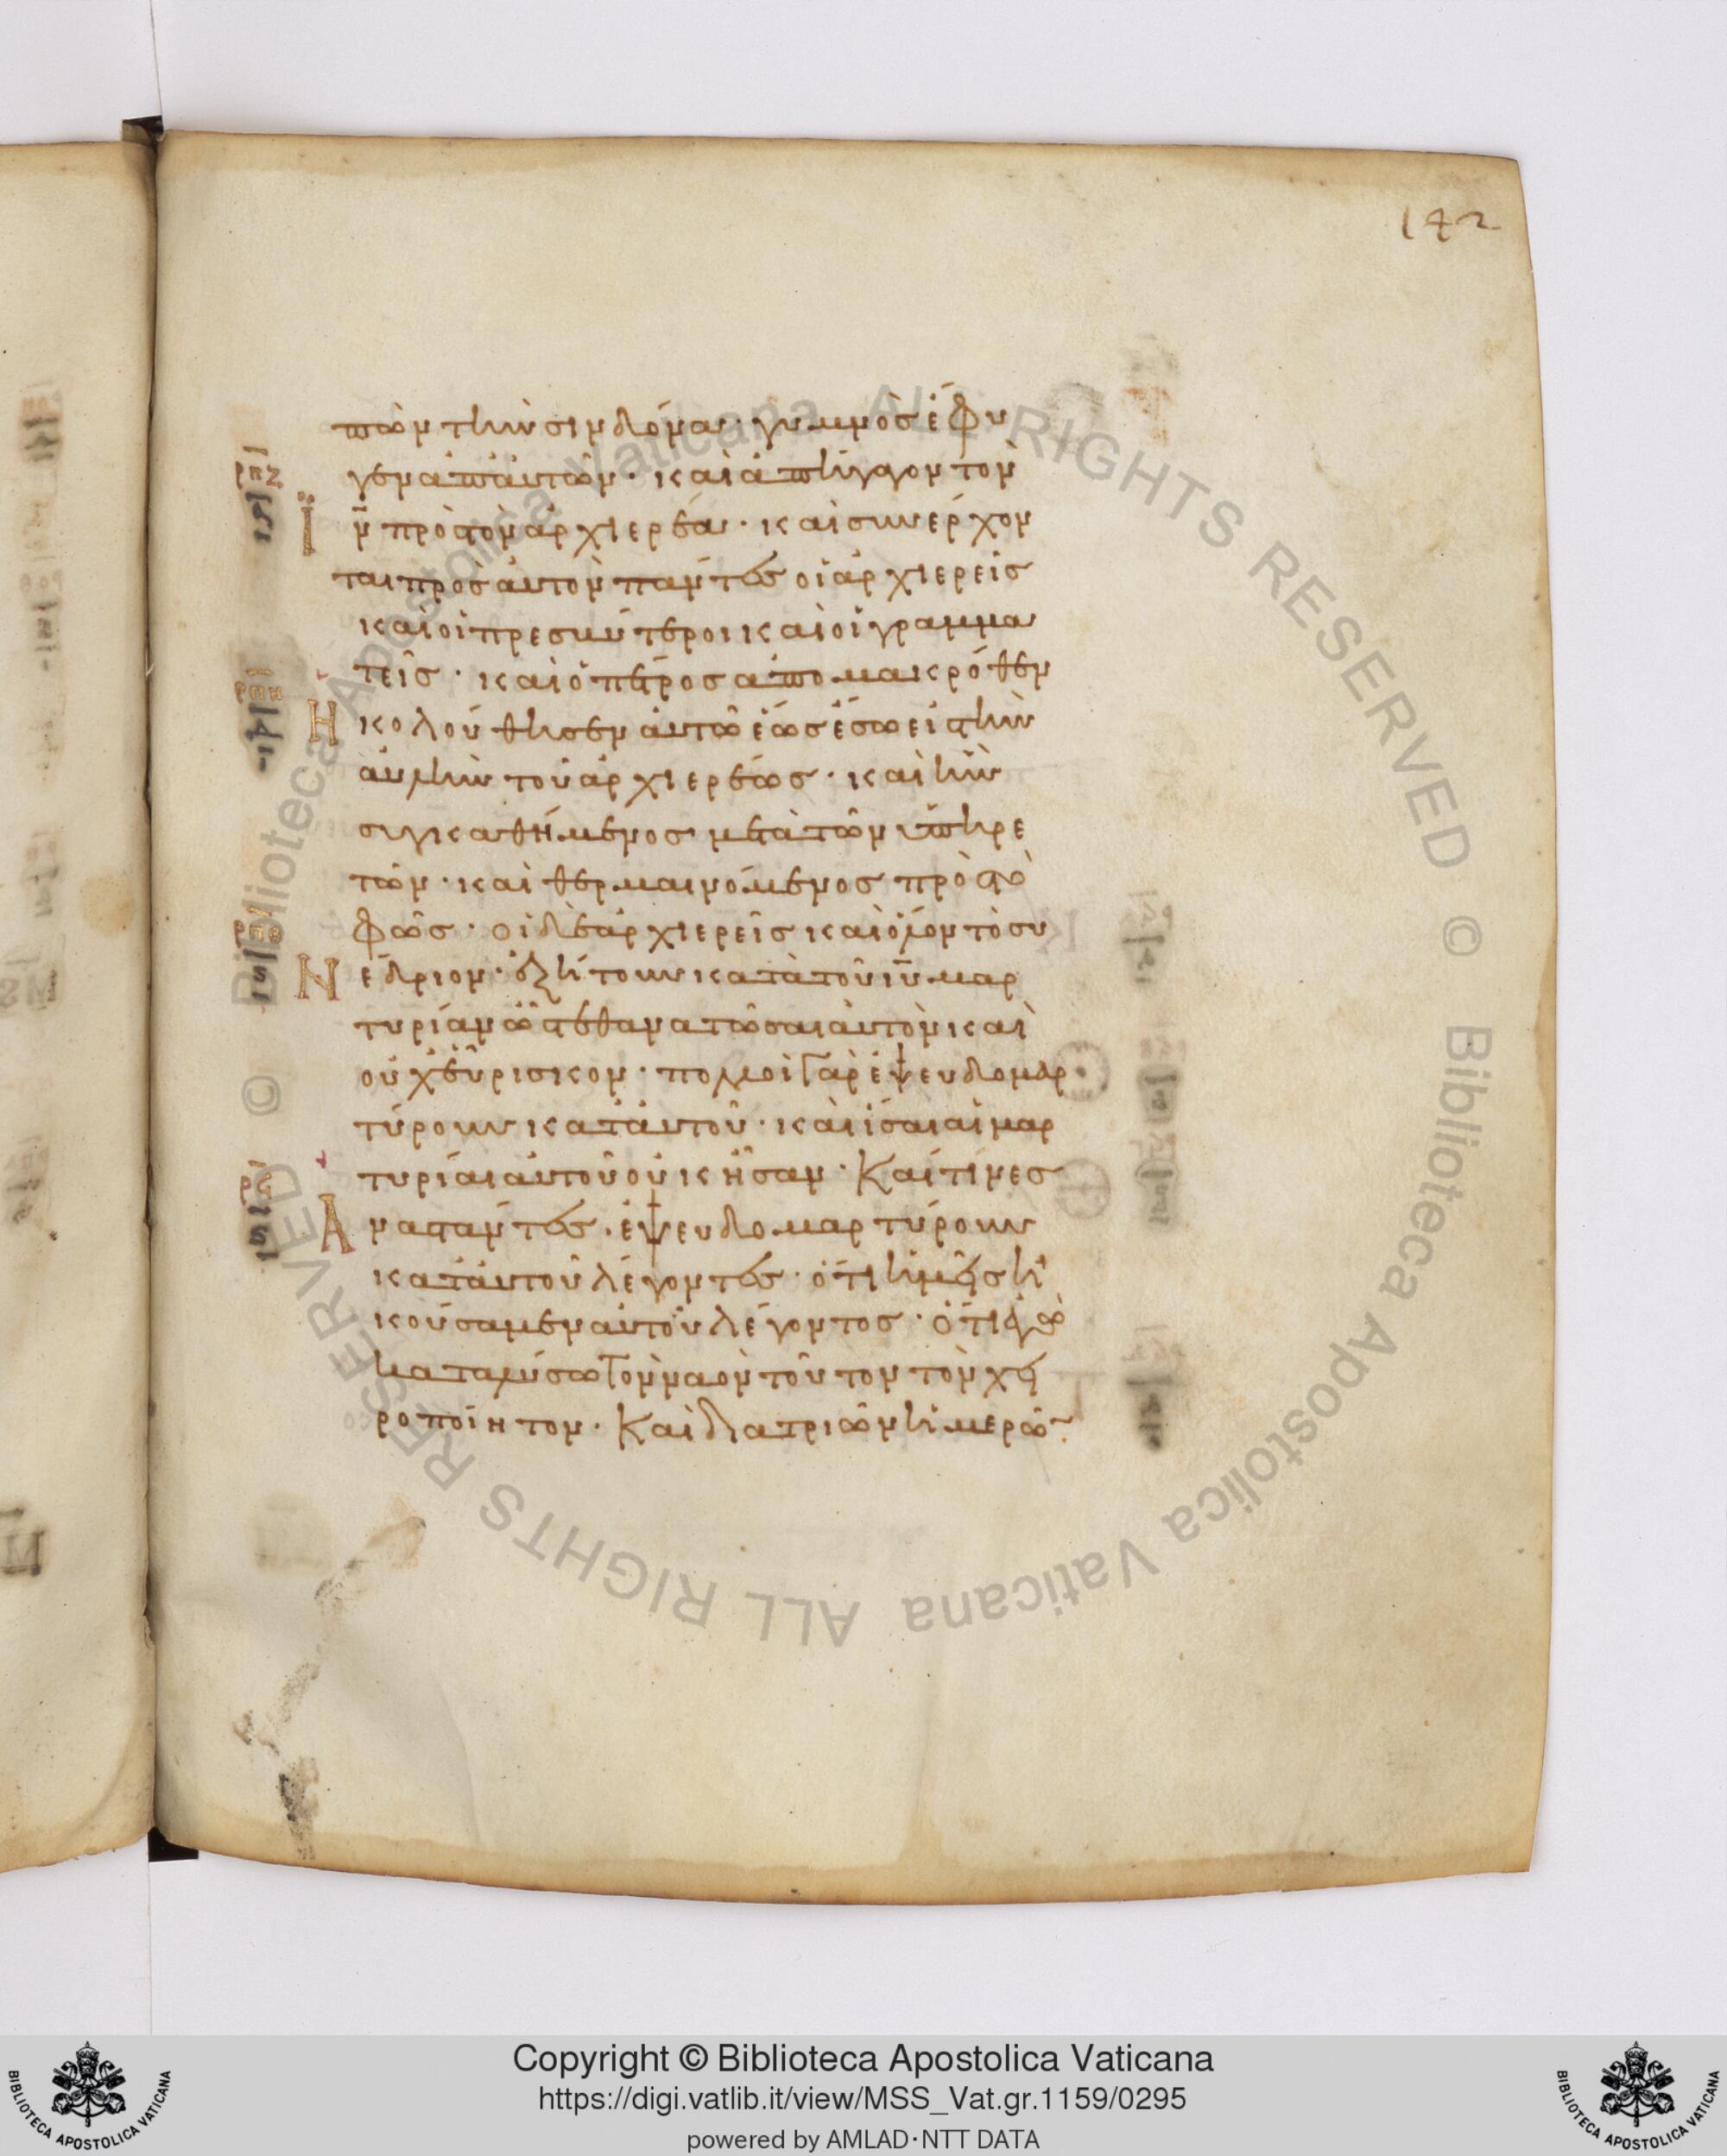 142
πὼν τὴν σινδόνα· γυμνὸς ἔφυ
γεν ἀπ' αὐτῶν· καὶ ἀπήγαγον τὸν
ι̅ν̅ πρὸς τὸν ἀρχιερέα· καὶ συνέρχον
ται πρὸς αὐτὸν πάντες οἱ ἀρχιερεῖς
καὶ οἱ πρεσβύτεροι καὶ οἱ γραμμα
τεῖς· καὶ ὁ πέτρος ἀπὸ μακρόθεν
Ηκολούθησεν αὐτῶ ἕως ἔσω εἰς τὴν
αὐλὴν τοῦ ἀρχιερέως· καὶ ἦν
συγκαθήμενος μετὰ τῶν ὑπηρε
τῶν· καὶ θερμαινόμενος πρὸς τὸ
φῶς· οἱ δὲ ἀρχιερεῖς καὶ ὅλον τὸ συ
Νέδριον· ἐζήτουν κατὰ τοῦ ι̅υ̅ μαρ
τυρίαν ὥστε θανατῶσαι αὐτὸν καὶ
οὐχ εὕρισκον· πολλοὶ γὰρ ἐψευδομαρ
τύρουν κατ' αὐτοῦ· καὶ ἴσαι αἱ μαρ
τυρίαι αὐτοῦ οὐκ ἦσαν· Καί τινες
Αναστάντες· ἐψευδομαρτύρουν
κατ' αὐτοῦ λέγοντες· ὅτι ἡμεῖς ἠ
κούσαμεν αὐτοῦ λέγοντος· ὅτι ἐγὼ
καταλύσω τὸν ναὸν τοῦτον τὸν χει
ροποίητον· Καὶ διὰ τριῶν ἡμερῶ~
Copyright © Biblioteca Apostolica Vaticana
https://digi.vatlib.it/view/MSS_Vat.gr.1159/0295
powered by AMLAD·NTT DATA
BIBLIOTECA APOSTOLICA VATICANA
BIBLIOTECA APOSTOLICA VATICANA
© Biblioteca Apostolica Vaticana ALL RIGHTS RESERVED
© Biblioteca Apostolica Vaticana ALL RIGHTS RESERVED